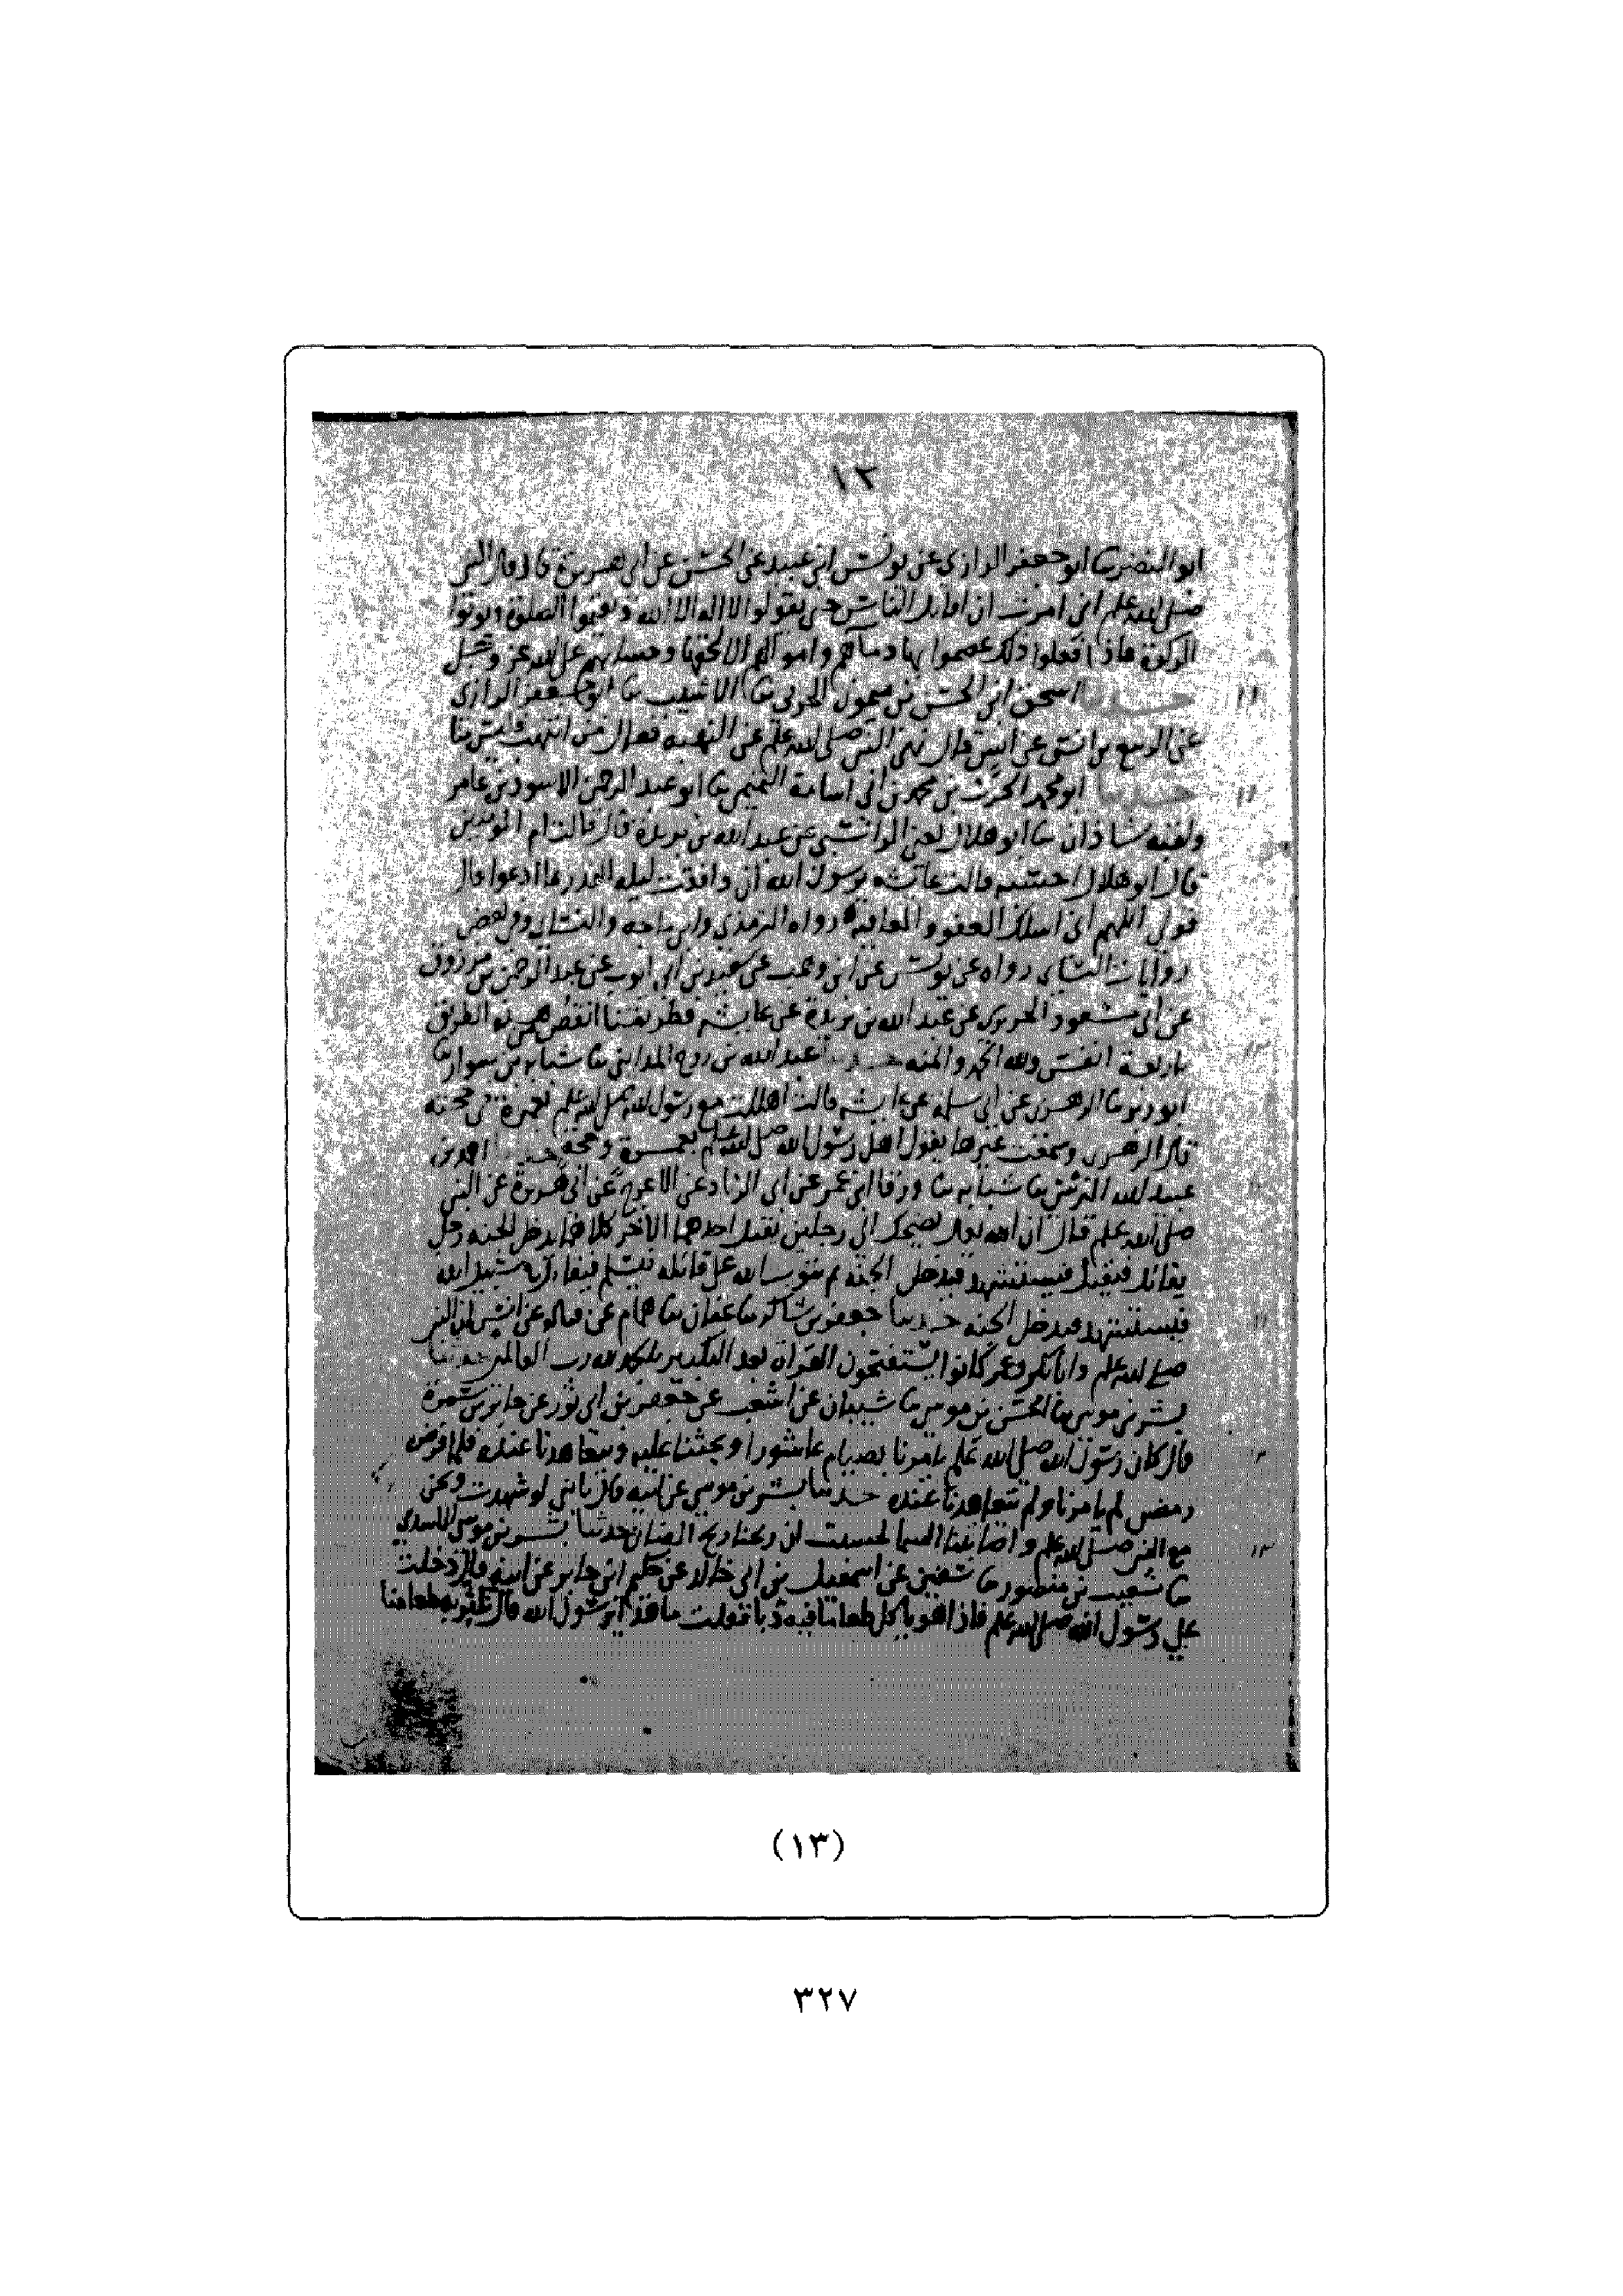 ١٢
ابو النضر ثنا ابو جعفر الرازي عن يونس ابن عبيد عن الحسن عن ابي هريرة قال قال النبي
صلى الله علم اني امرت ان اقاتل الناس حتى يقولوا لا اله الا الله ويقيموا الصلوة ويوتوا
الزكوة فاذا فعلوا ذلك عصموا بها دماهم واموالهم الا بحقها وحسابهم على الله عز وجل
حدثنا اسحق ابن الحسن بن ميمون الحربي ثنا الاشيب ثنا ابو جعفر الرازي
عن الربيع بن انس عن انس قال نهى النبي صلى الله علم عن النهبه فقال من انتهب فليس منا
حدثنا ابو محمد الحرث بن محمد بن ابي اسامة التميمي ثنا ابو عبد الرحمن الاسود بن عامر
ولقبه شاذان ثنا ابو هلال يعني الراسبي عن عبد الله بن بريدة قال قالت ام المومنين
قال ابو هلال احسبه قالت عائشه يرسول الله ان وافقت ليله القدر ما ادعوا قال
قولي اللهم اني اسلك العفو والعافية رواه الترمذي وابن ماجه والنسائي وفي بعض
روايات النسائي رواه عن يونس عن ابن وهب عن سعيد بن ابي ايوب عن عبد الرحمن بن مرزوق
عن ابي مسعود الجريري عن عبد الله بن بريدة عن عايشه فطريقنا انقص من هذه الطريق
باربعة انفس ولله الحمد والمنه حدثنا عبد الله بن روح المدايني ثنا شبابه بن سوار ثنا
عن ابي سلمه عن عايشه قالت اهللت مع رسول الله صلى الله علم بعمرة في حجته
قال الزهري وسمعت غيرها يقول اهل رسول الله صلى الله علم بعمرة وحجة احمد بن
عبيد الله النرسي ثنا شبابه ثنا ورقا ابن عمر عن ابي الزناد عن الاعرج عن ابي هريرة عن النبي
صلى الله علم قال ان الله تعالى يضحك الى رجلين يقتل احدهما الاخر كلاهما يدخل الجنه رجل
يقاتل فيقتل فيستشهد فيدخل الجنة ثم يتوب الله على قاتله فيسلم فيقاتل في سبيل الله
فيستشهد فيدخل الجنه حدثنا جعفر بن شاكر ثنا عفان ثنا همام عن قتاده عن انس ان النبي
صلى الله علم وابا بكر وعمر كانوا يستفتحون القراة بعد التكبير بالحمد لله رب العالمين حدثنا
بشر بن موسى ثنا الحسن بن موسى ثنا شيبان عن اشعب عن جعفر بن ابي ثور عن جابر بن سمرة
قال كان رسول الله صلى الله علم يامرنا بصيام عاشورا ويحثنا عليه ويتعاهدنا عنده فلما فرض
رمضن لم يامرنا ولم يتعاهدنا عنده حدثنا بشر بن موسى عن ابيه قال يا بني لو شهدت ونحن
مع النبي صلى الله علم واصابتنا السما لحسبت ان ريحنا ريح الضان حدثنا بشر بن موسى الاسدي
ثنا شعيب بن منصور ثنا سفين عن اسمعيل بن ابي خالد عن حكيم ابن جابر عن ابيه قال دخلت
على رسول الله صلى الله علم فاذا هو ياكل طعاما فيه دبا فقلت ما هذا يرسول الله قال نكثر به طعامنا
(١٣)
٣٢٧